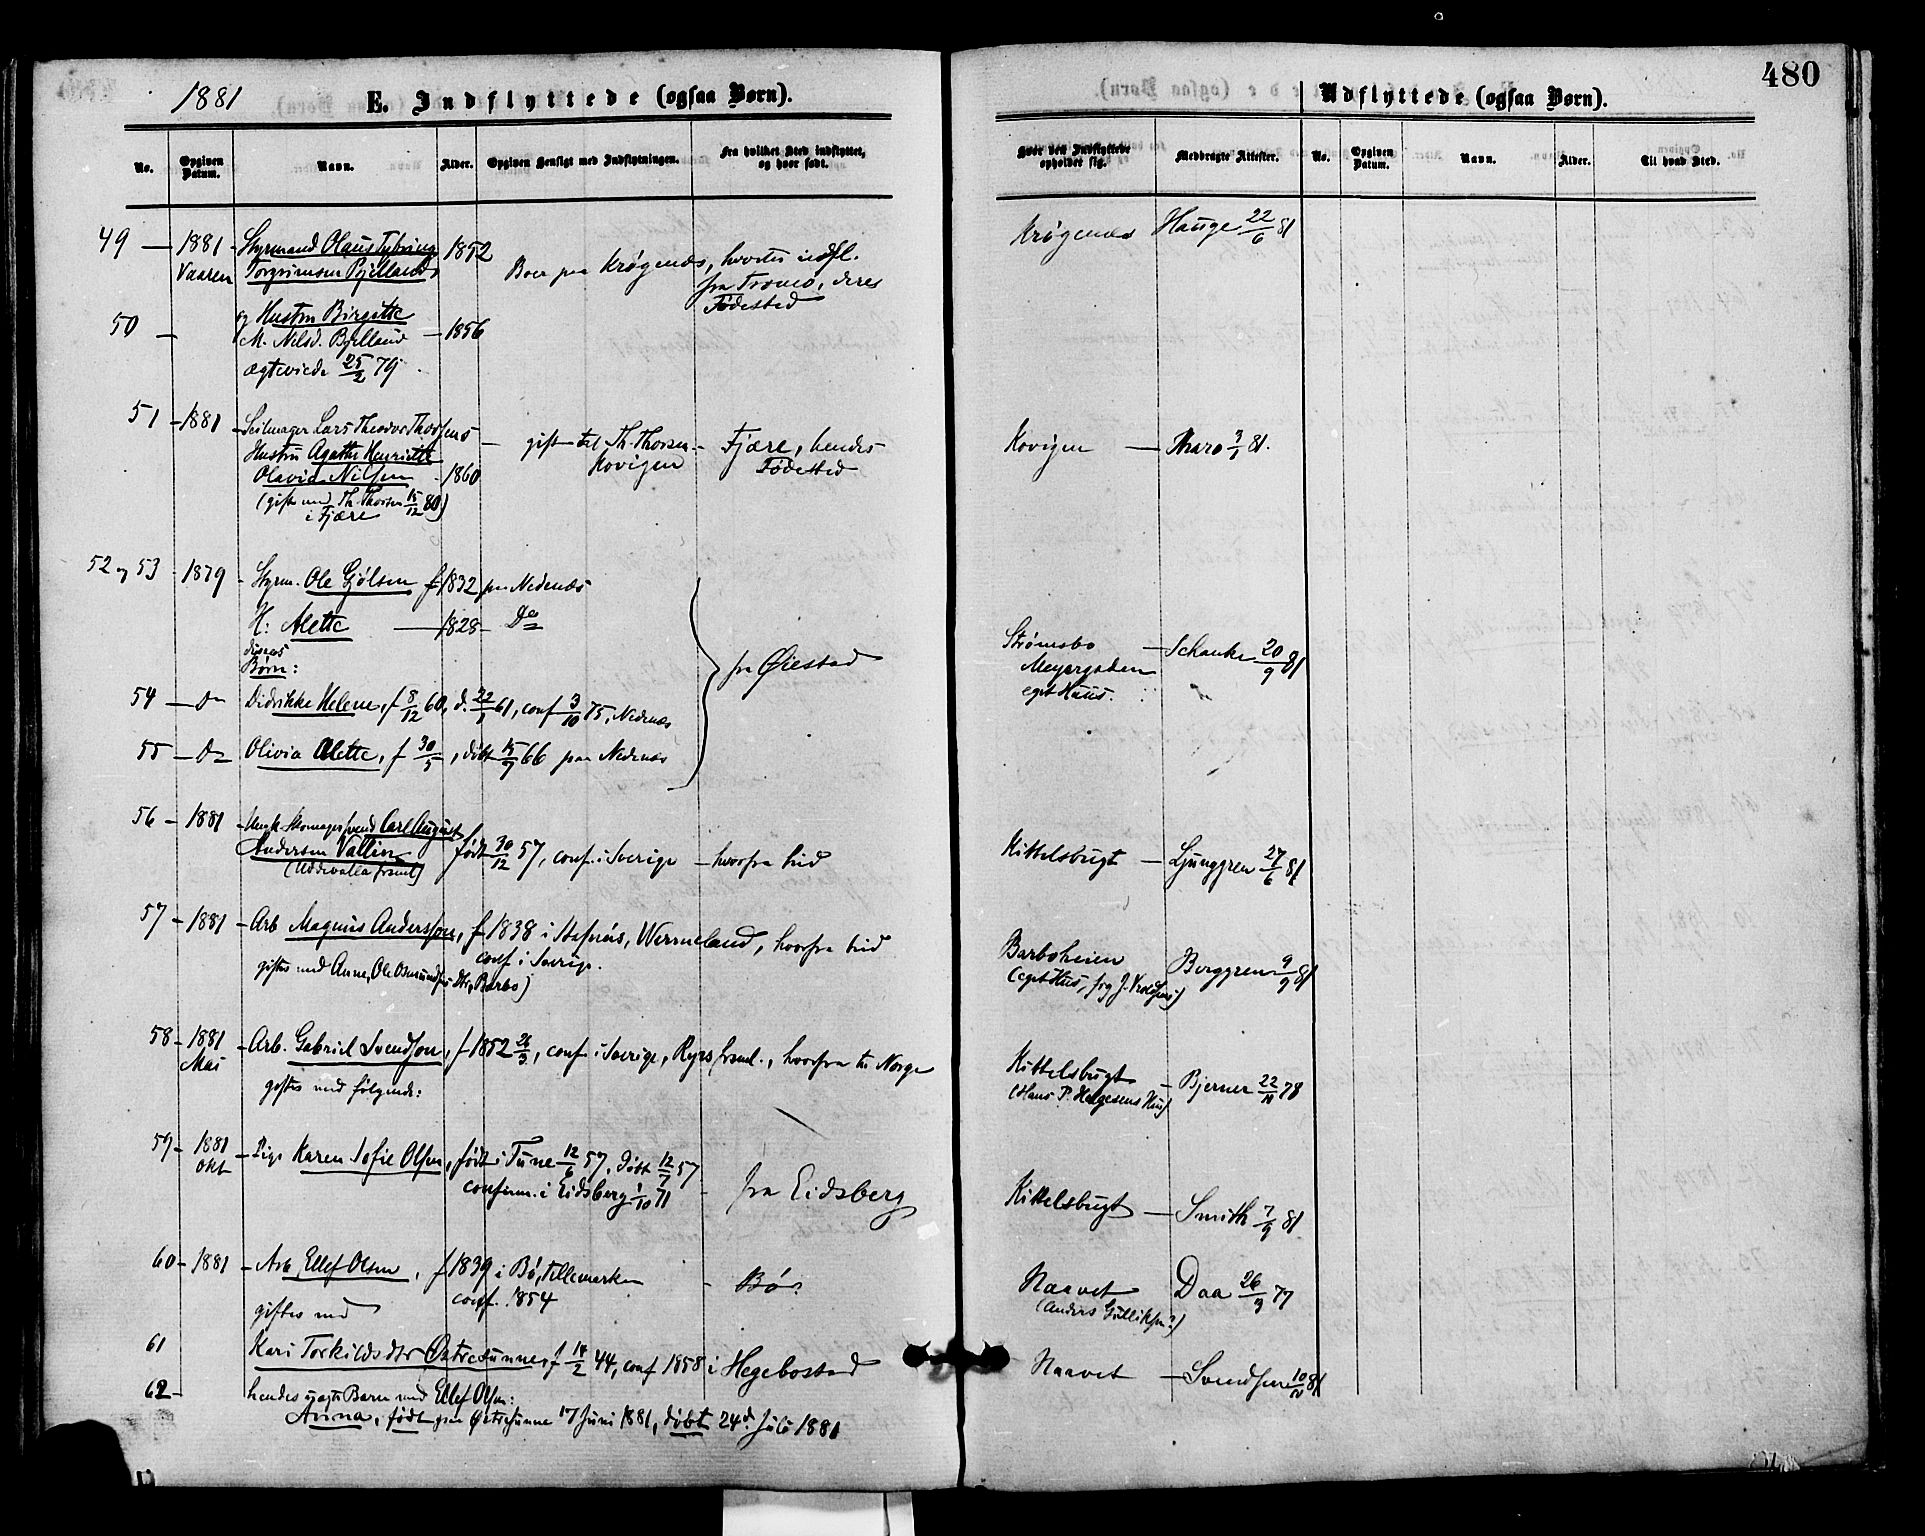 480
1881
E. Indflyttede (ogsaa Børn).
Udflyttede (ogsaa Børn).
No. Opgiven Datum. Navn. Alder. Opgiven Hensigt med Indflytningen. Fra hvilket Sted indflyttet, og hvor født.
Hvor den Indflyttede opholder sig. Medbragte Attester. No. Opgiven Datum. Navn. Alder. Til hvad Sted.
49 — 1881 - Styrmand Olaus Tybring 1852 Krøgenes Hauge 22/6 81
Vaaren Torgrimsen Bjelland Boer paa Krøgenæs, hvortil indfl.
fra Tromø, deres
Fødested
50 — og Hustru Birgitte
M. Nilsd. Bjelland — 1856
ægteviede 25/2 79
51 - 1881 - Seilmager Lars Theodor Thorsens
Hustru Agathe Henriette — gift til Th. Thorsen - Fjære, hendes Kovigen — Tharo 3/1 81.
Olavia Nilsen - 1860 Kovigen Fødested
(gift med Th. Thorsen 15/12 80)
i Fjære
52 og 53 - 1879 - Styrm. Ole Gjølsen f 1832 paa Nedenæs
H: Alette — 1828 - Do
disses
Børn: fra Øiestad Strømsbo — Schanke 20/9 81
Meyergaden
eget Huus.
54 — Do Didrikke Helene, f 8/12 60, d. 22/1 61, conf 3/10 75, Nedenæs
55 — Do Olivia Alette, f 30/5, døbt 15/9 66 paa Nedenæs
56 - 1881 - Ungk. Skomagersvend Carl August
Andersen Vallin født 30/12 57, conf. i Sverige — hvorfra hid Kittelsbugt — Ljunggren 27/6 81
(Uddevalla framl)
57 - 1881 - Arb Magnus Andersson, f 1838 i Stafnäs, Wermeland, hvorfra hid
conf i Sverige. Barboheien Berggren 9/9 81
giftes med Anne, Ole Osmundsens dtr, Barbo) (eget Hus,
58 - 1881 - Arb. Gabriel Svendson, f 1852 26/3, conf i Sverige, Ryrs framl., hvorfra til Norge
Mai Kittelsbugt — Bjerner 22/11 78
giftes med følgende: (Hans P. Helgesens Hus)
59 - 1881 - Pige Karen Sofie Olsen, født i Tune 12/6 57, døbt 12/7 57
Okt confirm. i Eidsberg 1/10 71 - fra Eidsberg Kittelsbugt — Smith 7/9 81
60 - 1881 - Arb Ellef Olsen, f 1839 i Bø, Tellemarken - Bø. Naavet Daa 26/9 77
conf. 1854 (Anders Gulliksen?)
giftes med
61 Kari Torkildsdtr Østretunne, f 14/2 44, conf 1858 i Hegebostad Naavet — Svendsen 10/11 81
62 - hendes uægte Barn med Ellef Olsen:
Anna, født paa Østretunne 17 Juni 1881, døbt 24d. Juli 1881